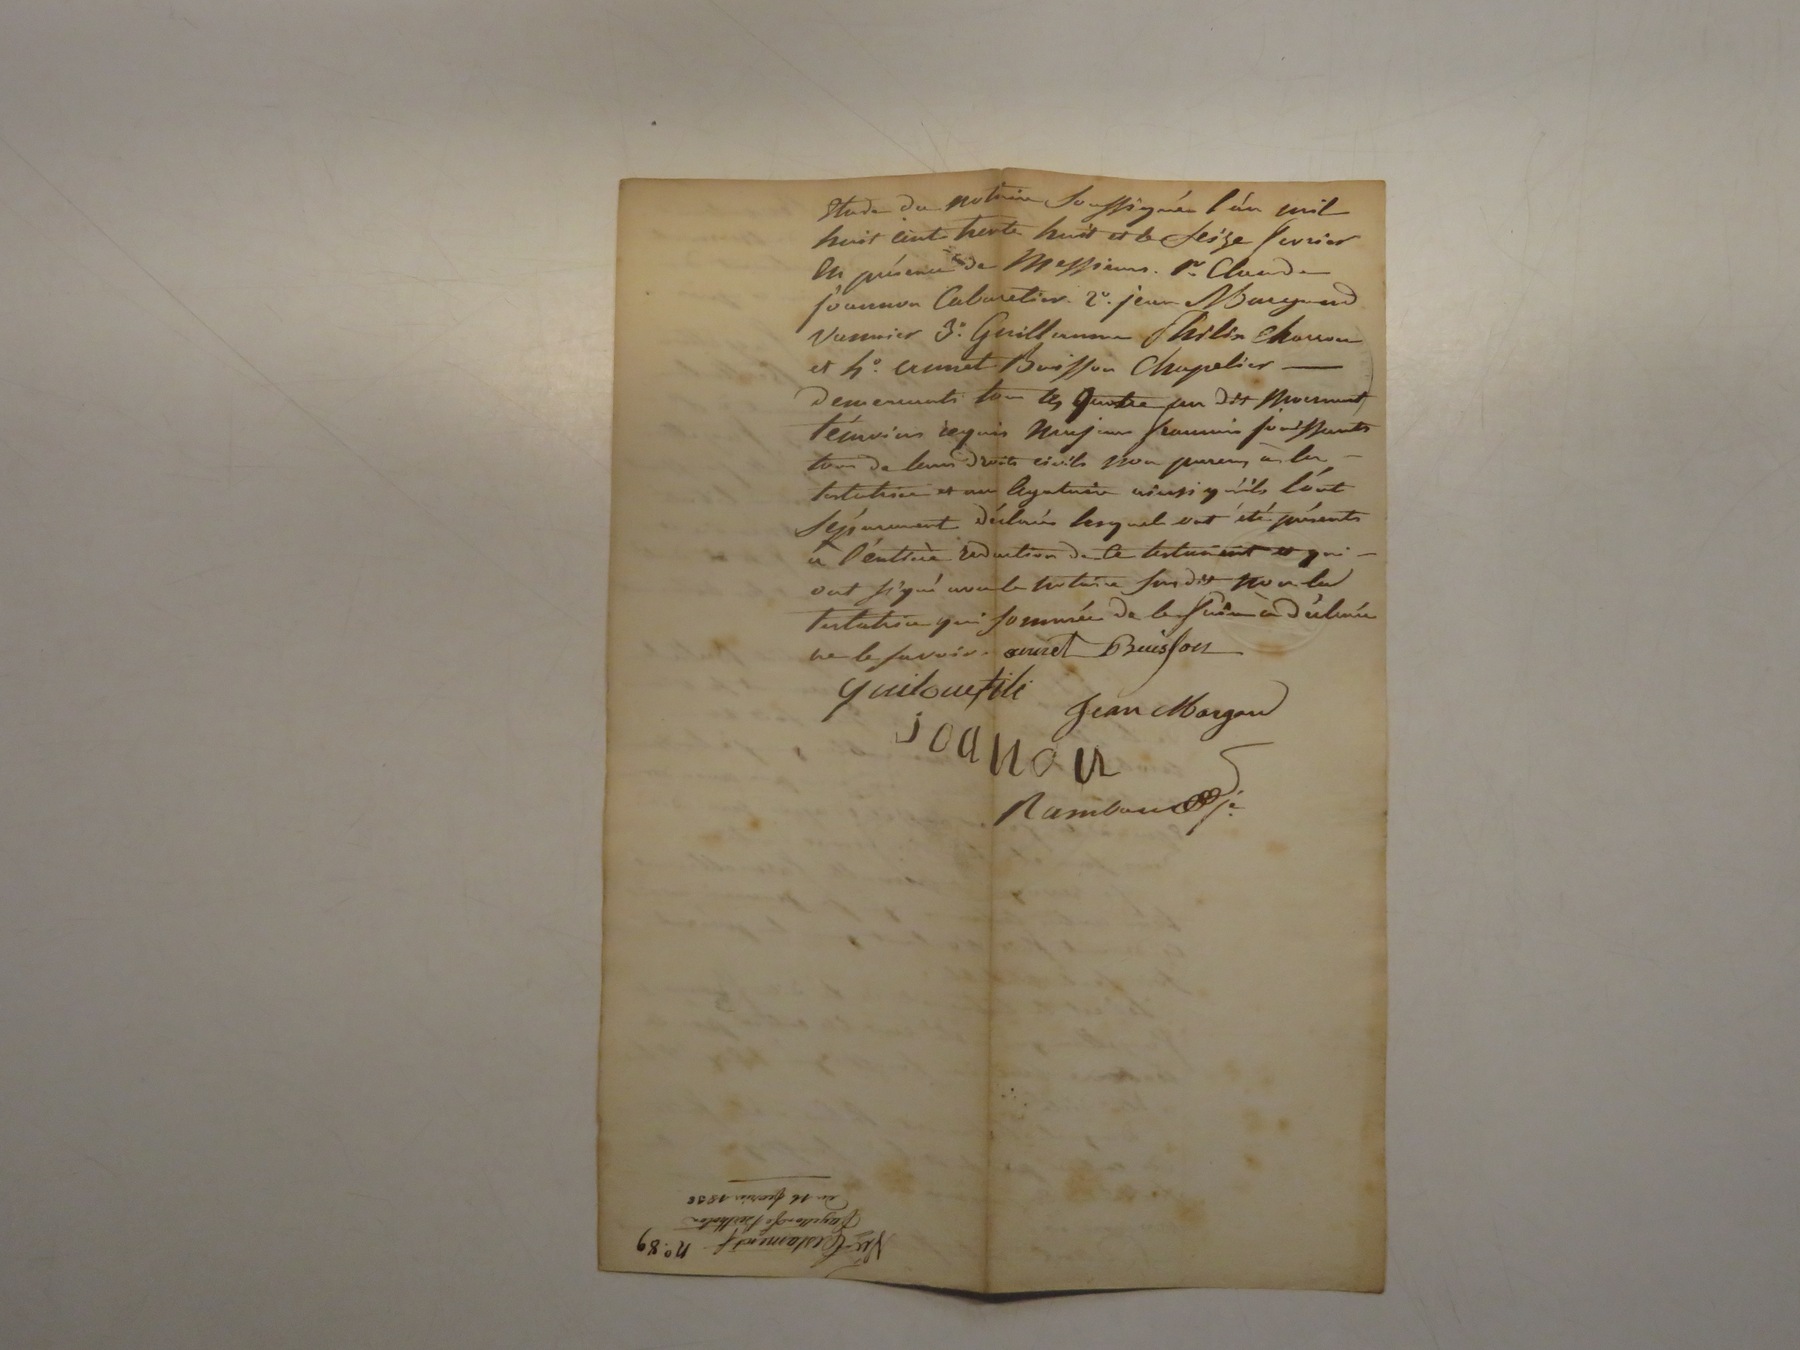 Etude du notaire soussignée l'an mil
huit cent trente huit et le seize fevrier
En présence de Messieurs. 1º Claude
joannon Cabaretier. 2º. jean Margand
Vannier 3º. Guillaume Philix Charron
et 4º. annet Buisson Chapelier
demeurants tous les quatre au dit Mornant
témoins requis Majeurs francais jouissants
tous de leurs droits civils non parens à la
testatrice et au legataire ainsi qu'ils l'ont
séparement déclarés lesquel ont été présents
à l'entière redaction de ce testament et qui
ont signé avec le notaire susdit non la
testatrice qui sommée de le faire à déclarée
ne le savoir. annet Buisson
Jean Margand
joanon
Rambaud je
Testament nº. 89
du 16 fevrier 1838